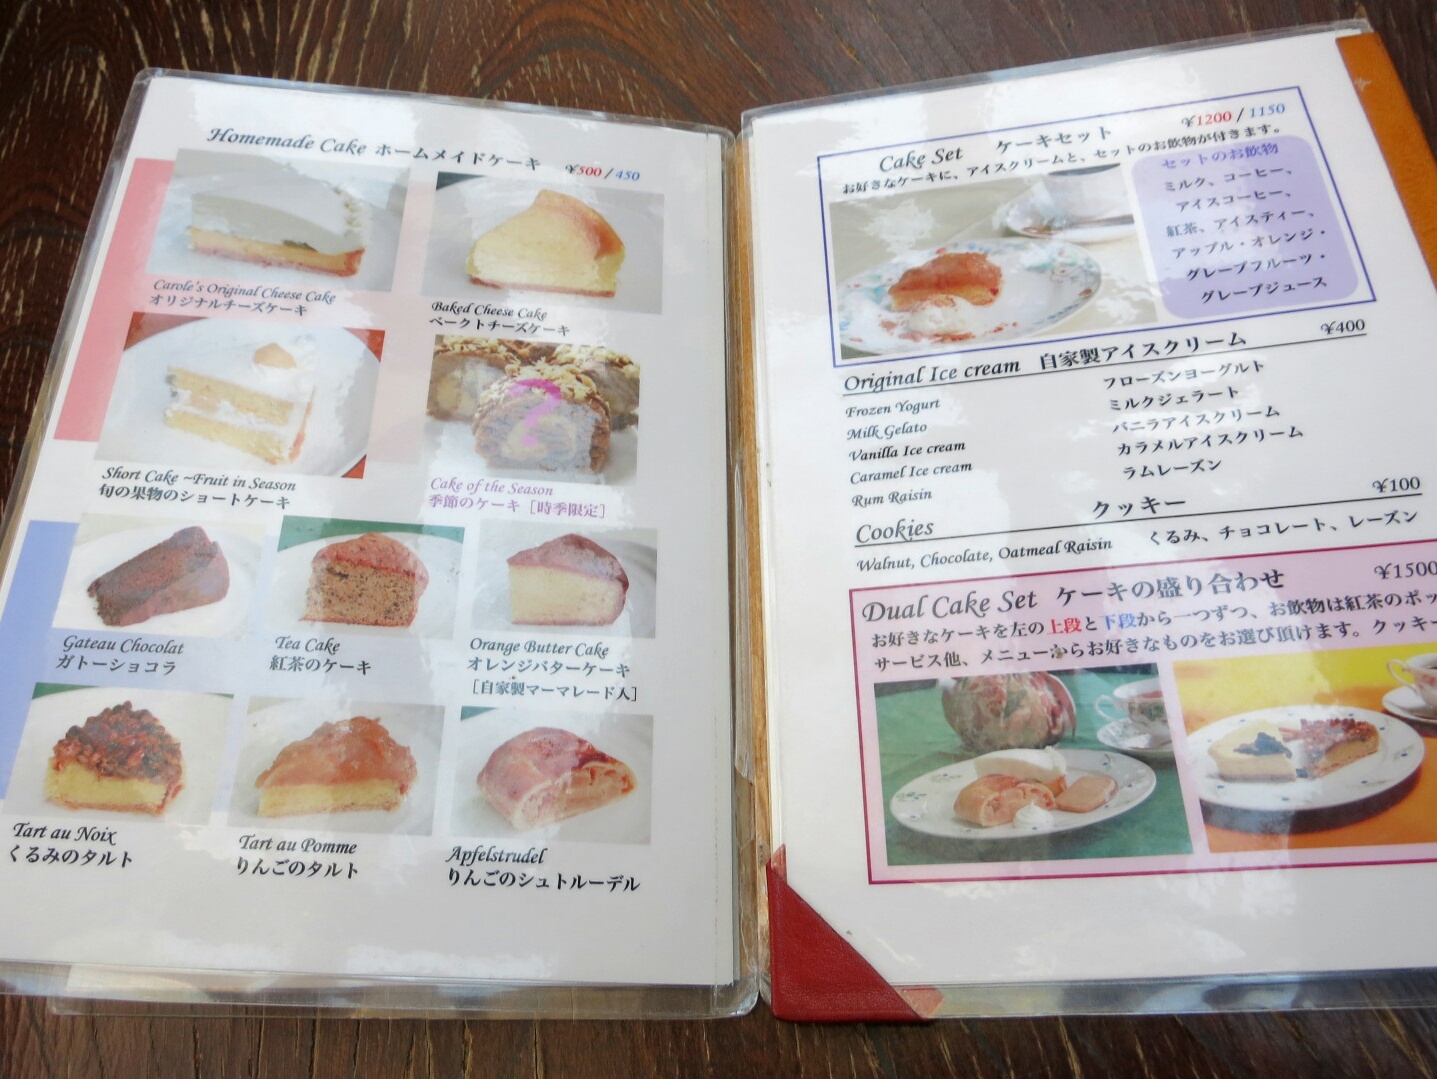 Homemade Cake ホームメイドケーキ ¥500 / 450
Carole's Original Cheese Cake
オリジナルチーズケーキ
Baked Cheese Cake
ベークトチーズケーキ
Short Cake ~Fruit in Season
旬の果物のショートケーキ
?
Cake of the Season
季節のケーキ［時季限定］
Gateau Chocolat
ガトーショコラ
Tea Cake
紅茶のケーキ
Orange Butter Cake
オレンジバターケーキ
［自家製マーマレード入］
Tart au Noix
くるみのタルト
Tart au Pomme
りんごのタルト
Apfelstrudel
りんごのシュトルーデル
Cake Set ケーキセット ¥1200 / 1150
お好きなケーキに、アイスクリームと、セットのお飲物が付きます。
セットのお飲物
ミルク、コーヒー、
アイスコーヒー、
紅茶、アイスティー、
アップル・オレンジ・
グレープフルーツ・
グレープジュース
Original Ice cream 自家製アイスクリーム ¥400
Frozen Yogurt フローズンヨーグルト
Milk Gelato ミルクジェラート
Vanilla Ice cream バニラアイスクリーム
Caramel Ice cream カラメルアイスクリーム
Rum Raisin ラムレーズン
Cookies クッキー ¥100
Walnut, Chocolate, Oatmeal Raisin くるみ、チョコレート、レーズン
Dual Cake Set ケーキの盛り合わせ ¥1500
お好きなケーキを左の上段と下段から一つずつ、お飲物は紅茶のポッ
サービス他、メニューからお好きなものをお選び頂けます。クッキー